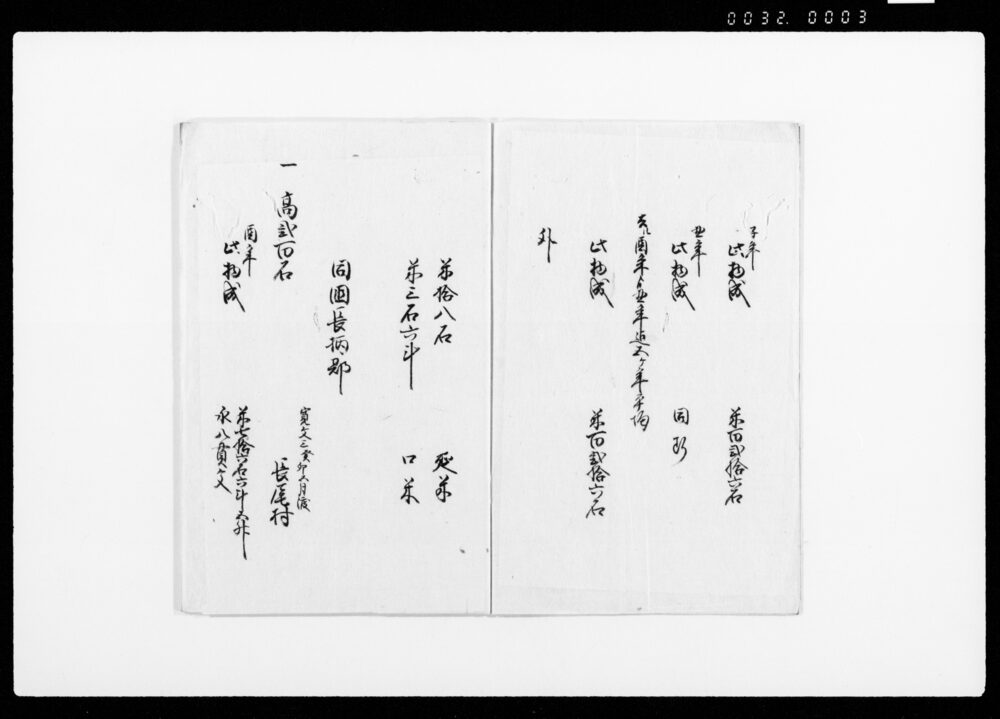 0032. 0003
子年
此物成 米百弐拾六石
丑年
此物成 同断
酉年ゟ丑年迄五ヶ年平均
此物成 米百弐拾六石
外
米拾八石 延米
米三石六斗 口米
同国長柄郡
寛文三癸卯 月渡
一 高弐百石 長尾村
酉年
此物成 米七拾六石六斗五升
永八貫文